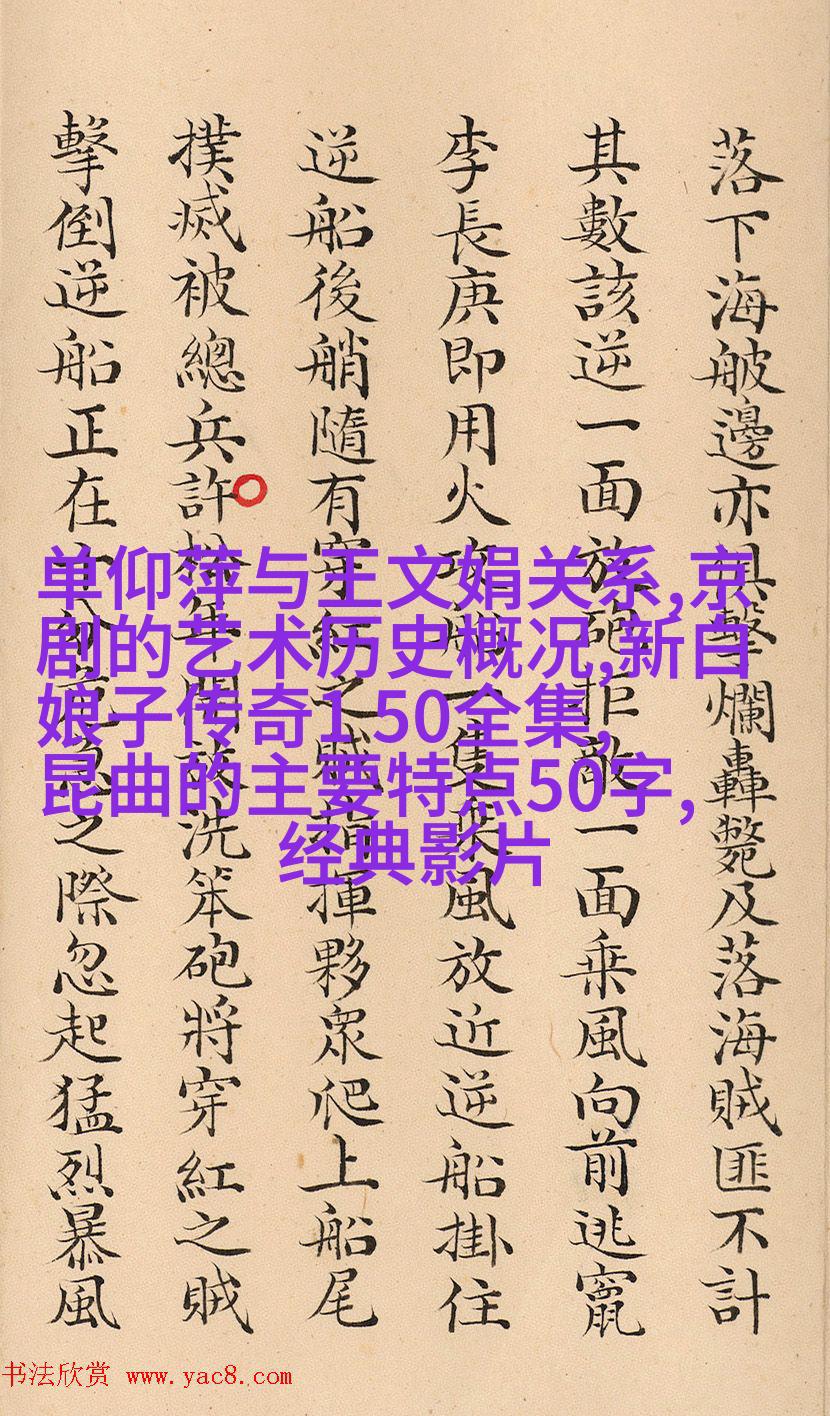 落下海舨邊亦俱擊爛轟斃及落海賊匪不計
其數該逆一面放砲拒敵一面乘風向前逃竄
李長庚即用火攻船一隻乘風放近逆船掛住
逆船後艄隨有穿紅之賊指揮夥眾爬上船尾
撲滅被總兵許松年開放洗笨砲將穿紅之賊
擊倒逆船正在十分危急之際忽起猛烈暴風
单仰萍与王文娟关系,京
剧的艺术历史概况,新白
娘子传奇1 50全集,
昆曲的主要特点50字,
经典影片
书法欣赏 www.yac8.com